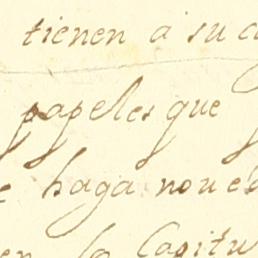 tienen a su c
papeles que
haga noue
en la Capitu